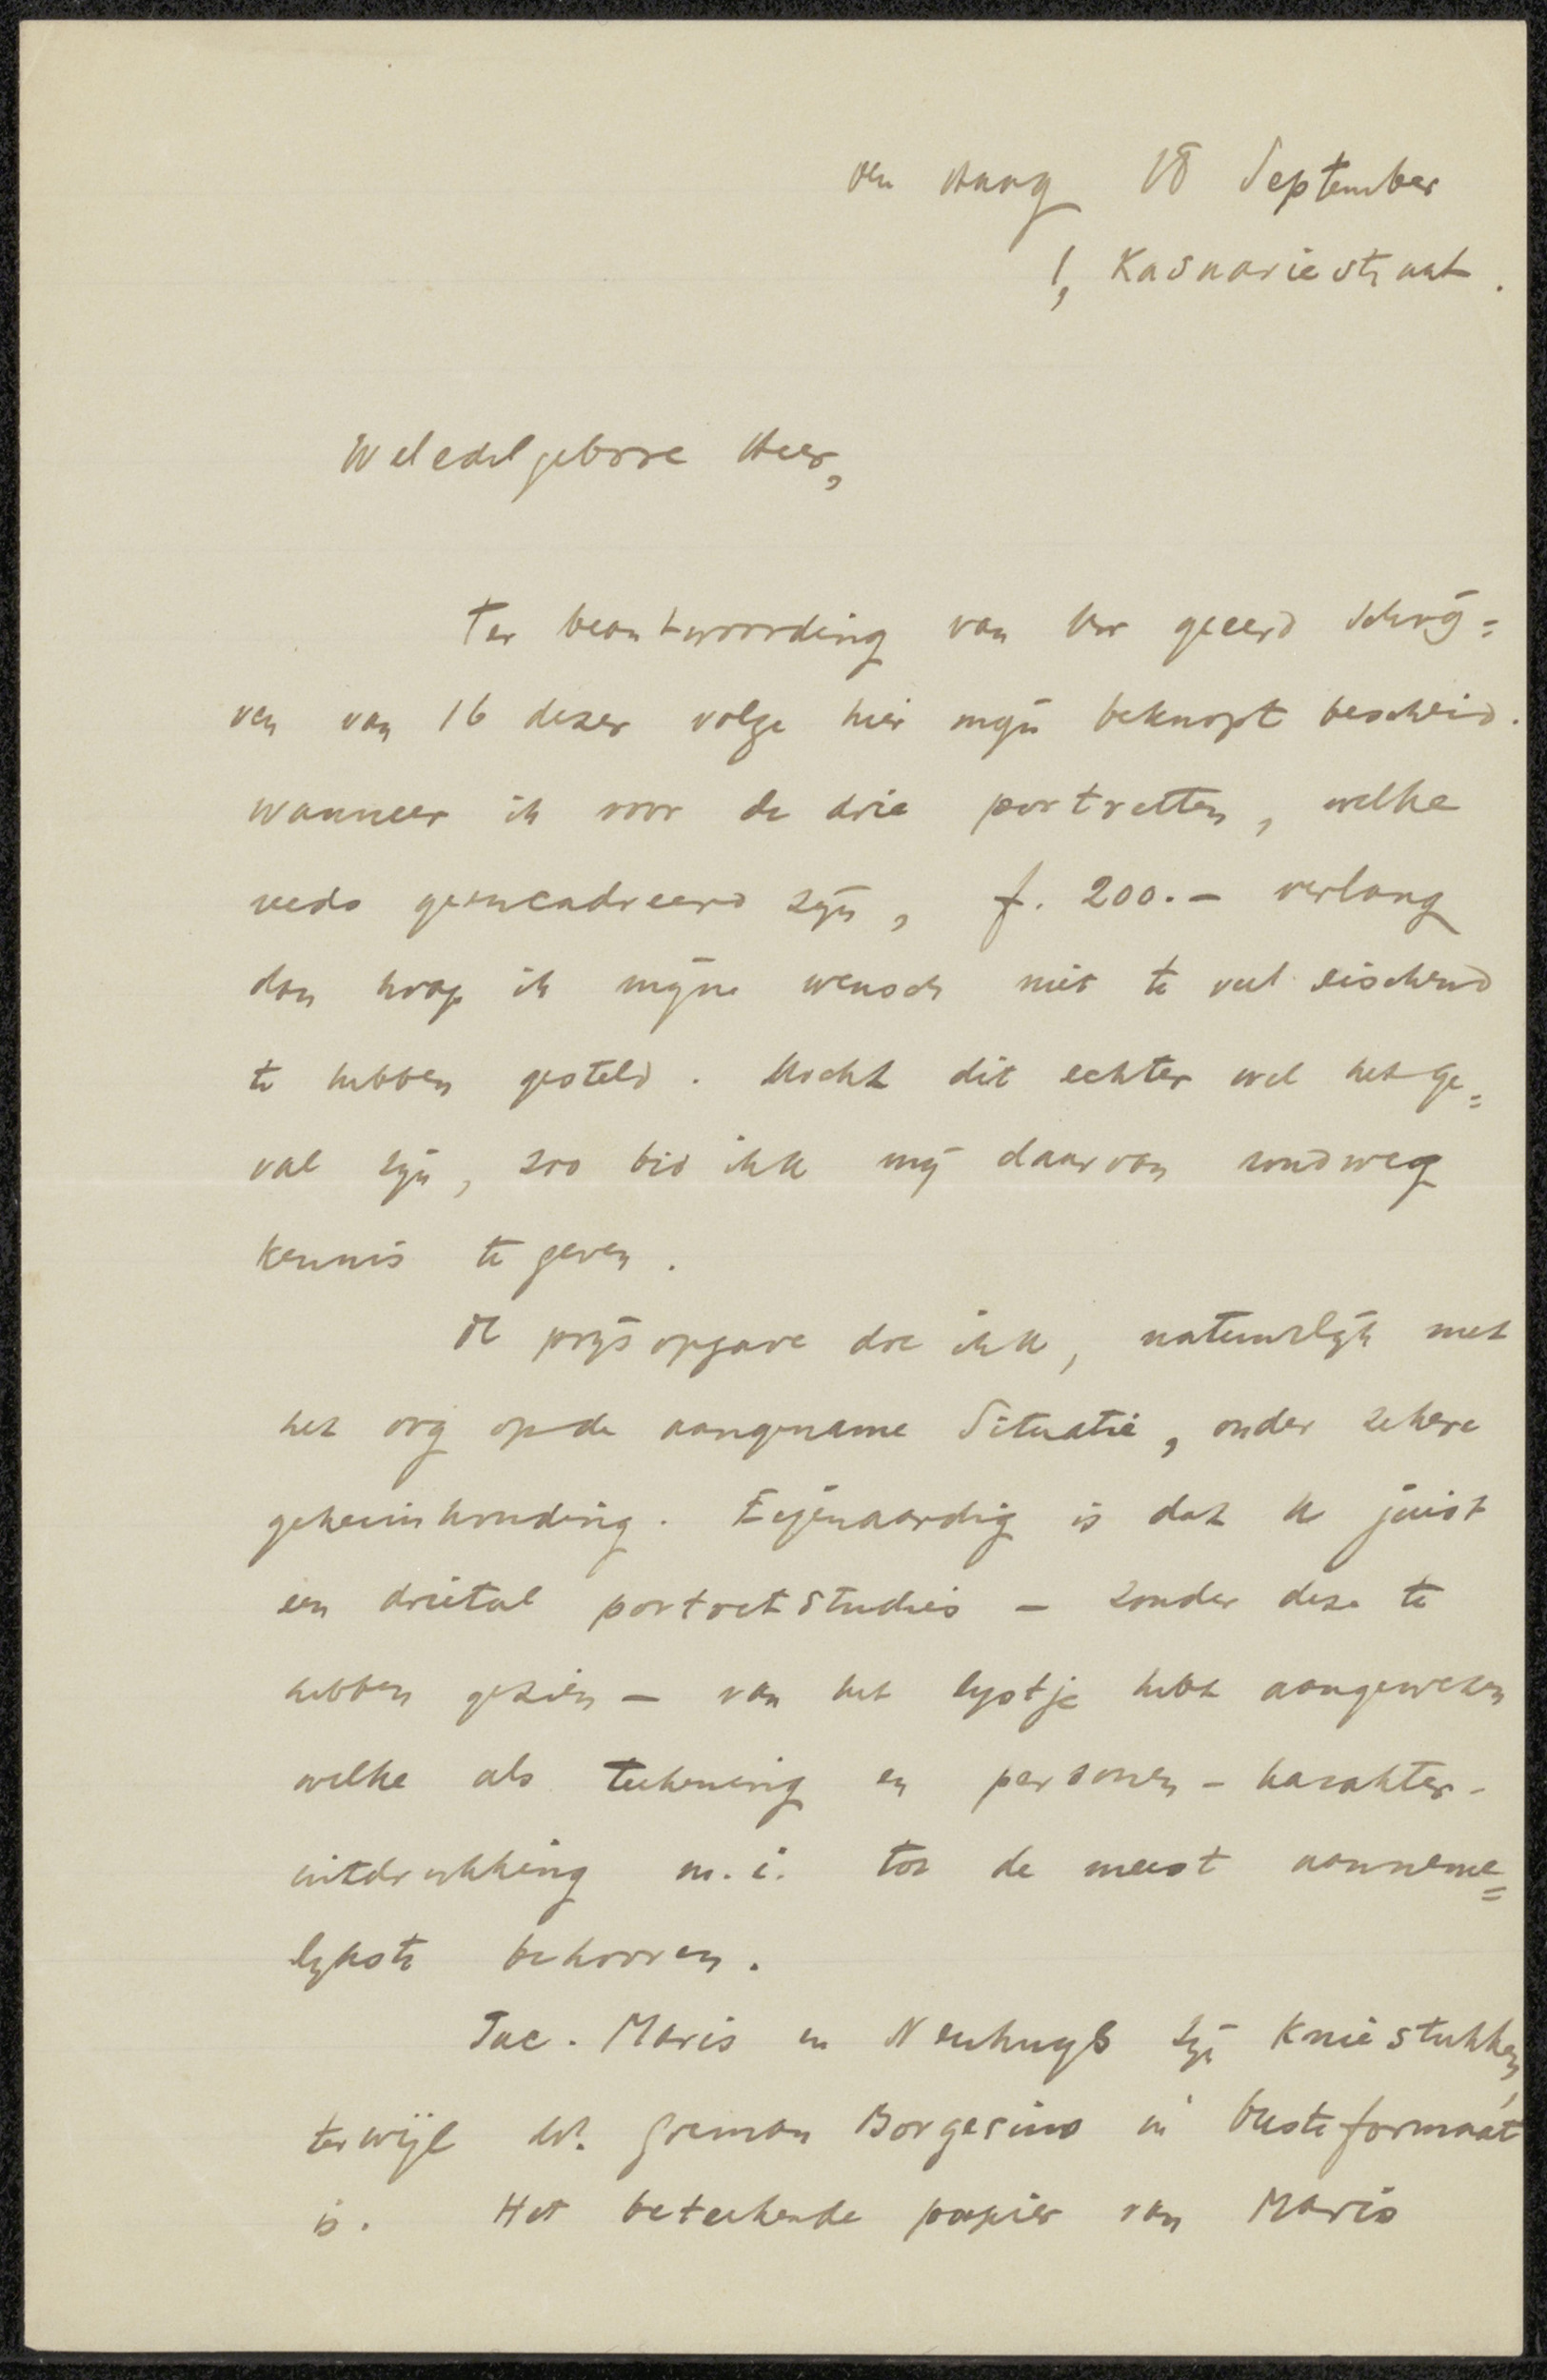 den Haag 18 September
1, Kasuariestraat.
Weledelgeboren Heer,
Ter beantwoording van Uw geëerd schrij=
ven van 16 dezer volge hier mijn beknopt bescheid.
Wanneer ik voor de drie portretten, welke
reeds geencadreerd zijn, f. 200.- verlang
dan hoop ik mijne wensch niet te veel eischend
te hebben gesteld. Mocht dit echter wel het ge=
val zijn, zoo bid ik U mij daarvan rondweg
kennis te geven.
De prijsopgave doe ik U, natuurlijk met
het oog op de aangename Situatie, onder zekere
geheimhouding. Eigenaardig is dat U juist
een drietal portretstudies - zonder deze te
hebben gezien - van het lijstje hebt aangewezen
welke als teekening en personen-karakter-
uitdrukking m.i. tot de meest aanneme=
lijkste behooren.
Jac. Maris en Neuhuys zijn Kniestukken,
terwijl Dr. Goeman Borgesius in busteformaat
is. Het beteekende papier van Maris